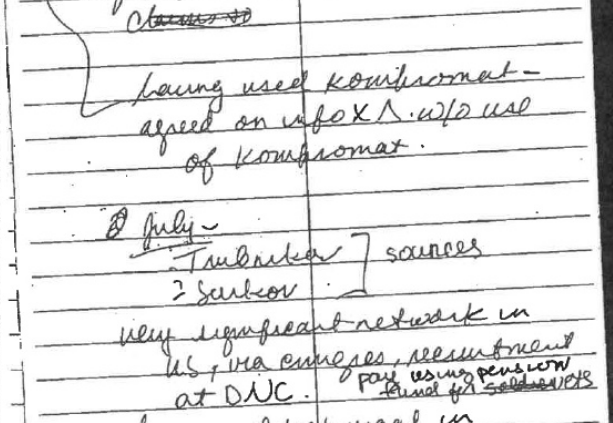 having used kompromat -
agreed on info X Δ. w/o use
of kompromat.
July -
: Trubnikov ] sources
: Surkov
very significant network in
US, via emigres, recruitment
at DNC. pay using pension
fund for vets
in